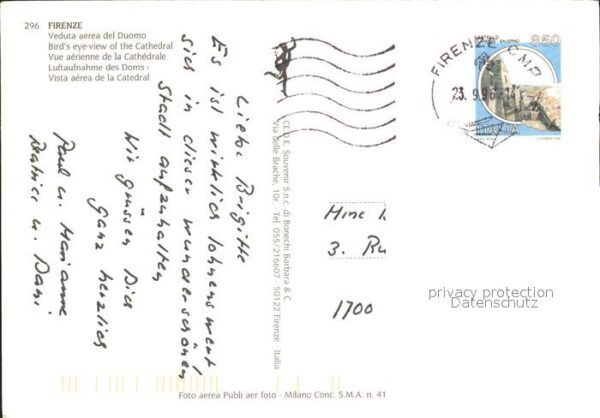 296 FIRENZE
Veduta aerea del Duomo
Bird's eye-view of the Cathedral
Vue aérienne de la Cathédrale
Luftaufnahme des Doms
Vista aérea de la Catedral
Liebe Brigitte
Es ist wirklich lohnenswert
sich in dieser wunderschönen
Stadt aufzuhalten!
Wir grüssen Dich
ganz herzlich
Paul u. Marianne
Beatrice u. Dani
CE.D.E. Souvenir S.n.c. di Bonechi Barbara & C.
Via delle Brache, 10r. - Tel. 055/216607 - 50122 Firenze - Italia
CASTELLO SALERNO
850
ITALIA
FIRENZE CMP
23.9.9
3. Ru
1700
privacy protection
Datenschutz
Foto aerea Publi aer foto - Milano Conc. S.M.A. n. 41